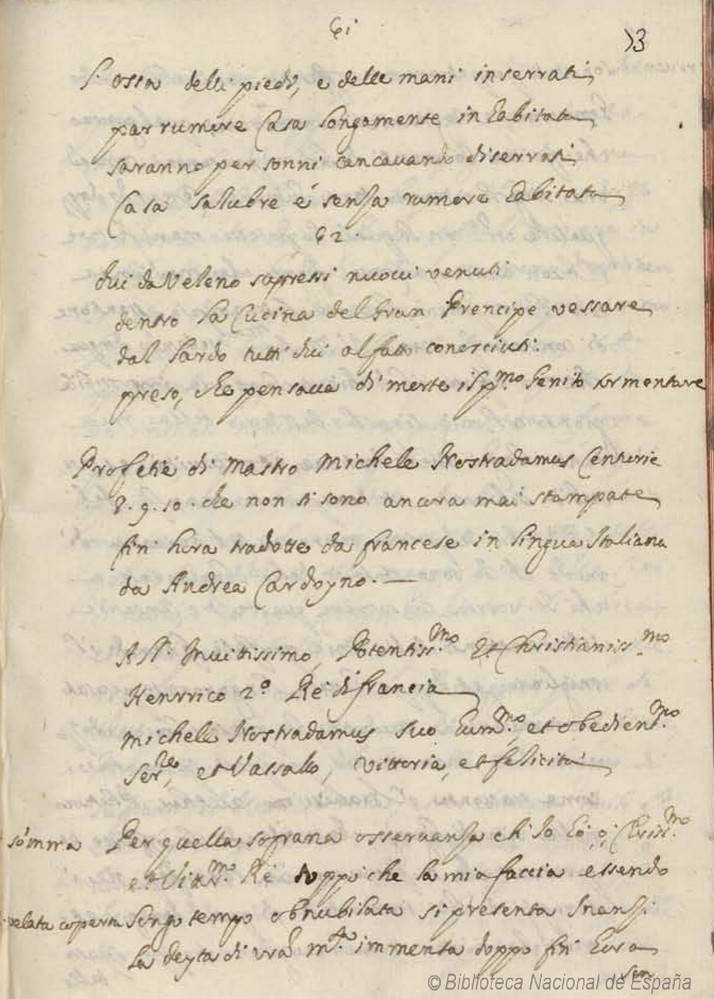 61
53
L'ossa delli piedi, e delle mani inserrati
par rumore Casa longamente inhabitata
saranno per sonni concavando diserrati
Casa salubre é senza rumore habitata
62.
Dui da Veleno sopressi nuovi venuti
dentro la Cucina del Gran Prencipe vessare
dal lordo tutti dui al fatto conosciuti
preso, che pensava di morte il pmo Genito tormentare
Profetie di Mastro Michele Nostradamus Centurie
8. 9. 10. che non si sono ancora mai stampate
fin' hora tradotte da francese in lingua Italiana
da Andrea Cardoyno. —
All' Invittissimo, Potentissmo Et Christianissmo
Henrrico 2º Rè di francia
Michele Nostradamus suo hummo, et obedientmo
Serre, et Vassallo, vittoria, et felicità
sómma Per quella soprana osservanza ch' Io hó, ó, Chrismo
et Vittmo Ré doppo che la mia faccia essendo
velata coperta longo tempo obnubilata si presenta Inanzi
la deyta di vra Mtà immensa doppo fin' hora
© Biblioteca Nacional de España